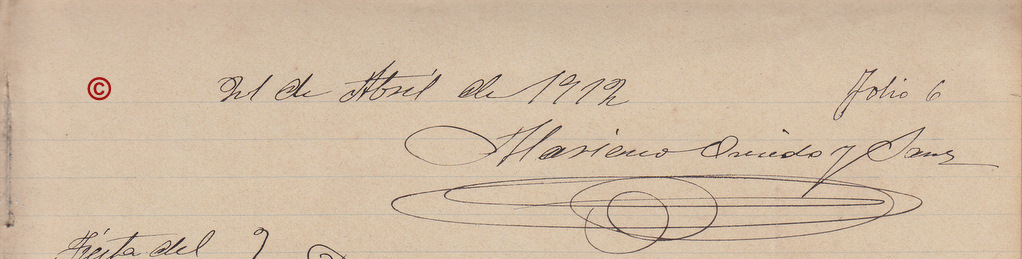 ©
21 de Abril de 1912 Folio 6
Mariano Oviedo y Sanz
Fiesta del 2